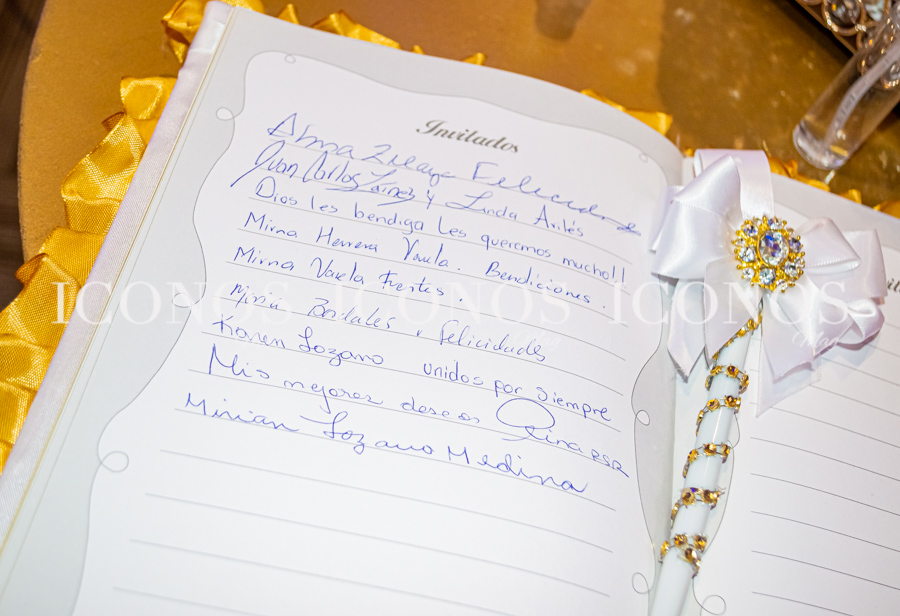 Invitados
Alma Zelaya Felicidades
Juan Carlos Lainez y Linda Avilés
Dios les bendiga les queremos mucho!!
Mirna Herrera Varela. Bendiciones.
Mirna Varela Fuertes.
Felicidades
Karen Lozano unidos por siempre
Mis mejores deseos Gina RSR
Mirian Lozano Medina
ICONOS ICONOS ICONOS